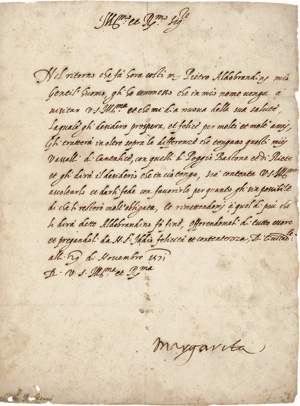 Ill.mo et R.mo Sig.re
Nel ritorno che fà hora costì m. Pietro Aldobrandino mio
Gentil'huomo, gl'ho commesso che in mio nome venga a
visitar V.S. Ill.ma et che mi dia nuova della sua salute,
laquale gli desidero prospera, et felice per molti et molt'anni,
Gli tratterà in oltre sopra le differenze che vengano quelli miei
Vassalli di Cantalice, con quelli di Poggio Bustone et di Riete
et gli dirà il desiderio che in ciò tengo, sia contenta V.S. Ill.ma
ascoltarlo et darli fede con favorirlo per quanto gli sia possibile
di che le resterò molt'obligata, et rimettendomi a quel di più che
le dirà detto Aldobrandino fò fine, offerendomeli di tutto cuore
et pregandoli da N.S. Iddio felicità et contentezza, Di
alli 29 di Novembre 1571
Di V.S. Ill.ma et R.ma
Margarita